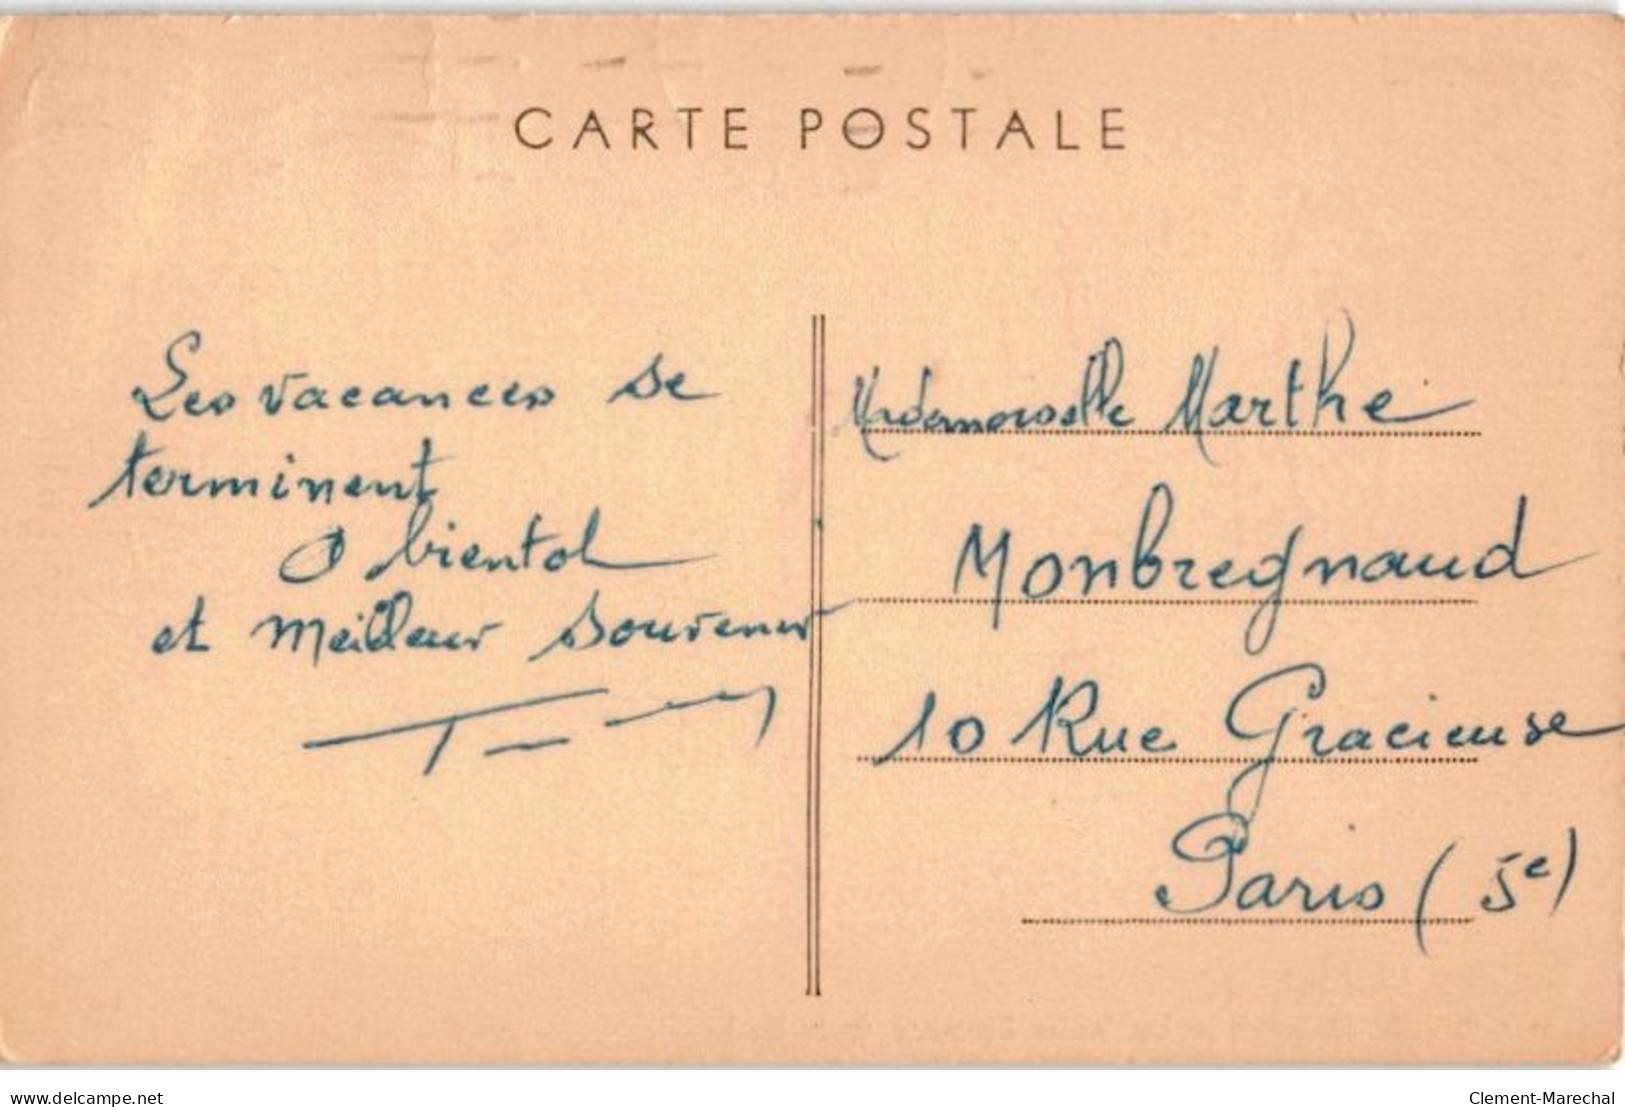 CARTE POSTALE
Les vacances se
terminent
A bientot
et meilleur souvenir
Mademoiselle Marthe
Monbregnaud
10 Rue Gracieuse
Paris (5e)
delcampe.net
Clement-Marechal